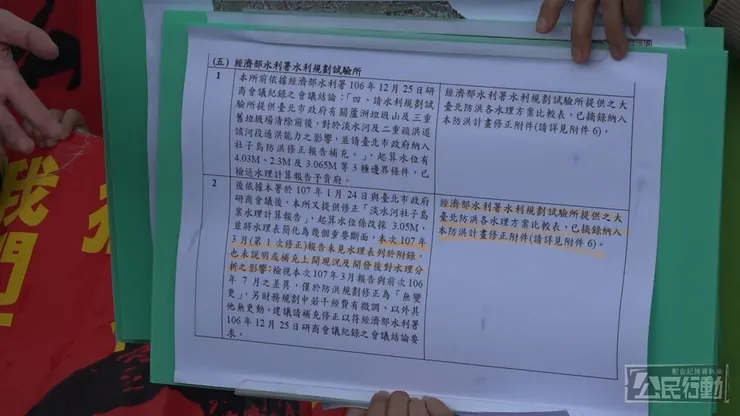 (五) 經濟部水利署水利規劃試驗所
1
本所前依據經濟部水利署106年12月25日研
商會議紀錄之會議結論:「四、請水利規劃試
驗所提供臺北市政府有關蘆洲垃圾山及三重
舊垃圾場清除前後,對於淡水河及二重疏洪道
該河段通洪能力之影響,並請臺北市政府納入
社子島防洪修正報告補充。」,起算水位有
4.03M、2.3M及3.065M等3種邊界條件,已
檢送水理計算報告予貴府。
經濟部水利署水利規劃試驗所提供之大
臺北防洪各水理方案比較表,已摘錄納入
本防洪計畫修正附件(請詳見附件6)。
2
後依據本署於107年1月24日與臺北市政府
研商會議後,本所又提供修正「淡水河社子島
案水理計算報告」,起算水位係改採3.05M,
並將水理表簡化為幾個重要斷面,本次107年
3月(第1次修正)報告未見水理表列於附錄,
也未說明或補充上開現況及開發後對水理分
析之影響;檢視本次107年3月報告與前次106
年7月之差異,僅於防洪規劃修正為「無變
更」,另財務規劃中若干經費有微調,以外其
他無更動,建議請補充修正以符經濟部水利署
106年12月25日研商會議紀錄之會議結論要
求。
經濟部水利署水利規劃試驗所提供之大
臺北防洪各水理方案比較表,已摘錄納入
本防洪計畫修正附件(請詳見附件6)。
我
們
影音紀錄資料庫
公民行動